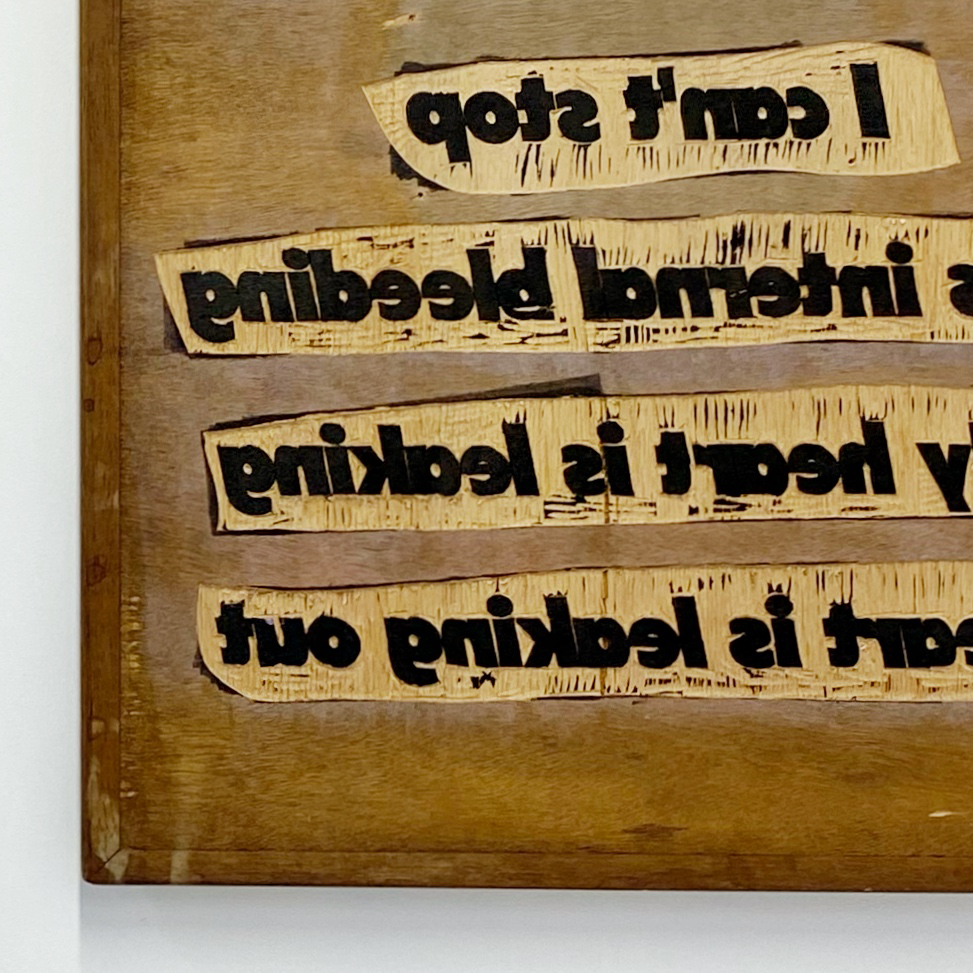 I can't stop
internal bleeding
heart is leaking
is leaking out